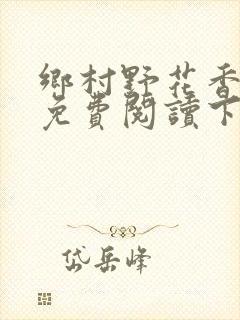 鄉村野花香
免費閱讀下
岱岳峰